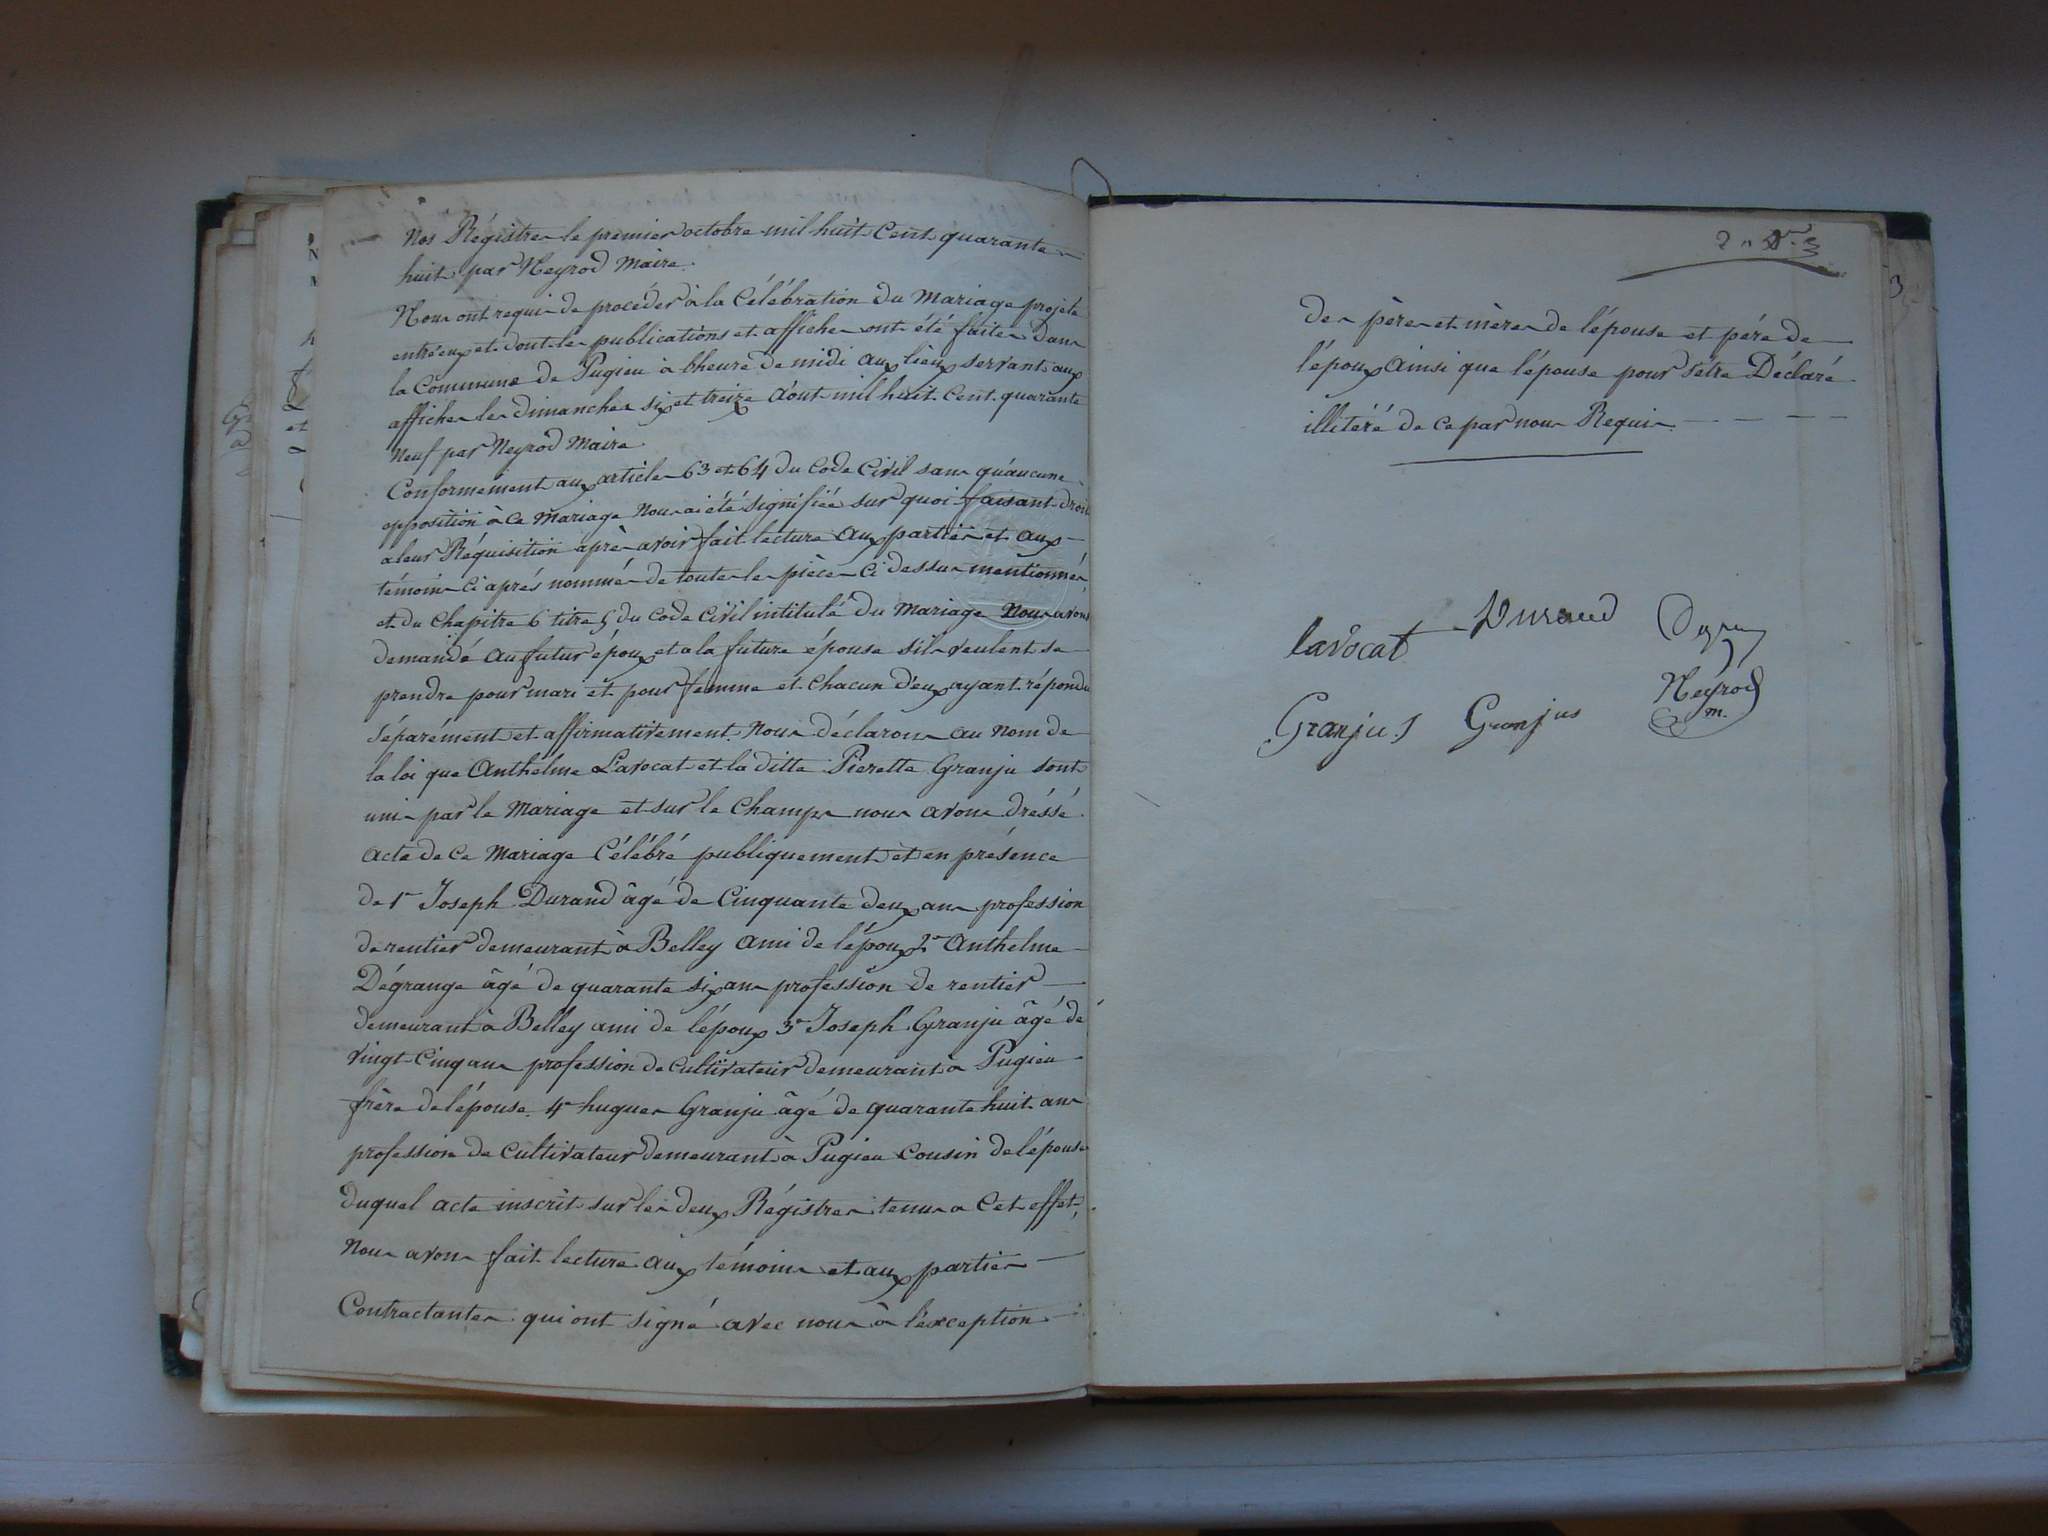 nos Régistres le premier octobre mil huit Cent quarante
huit par Neyrod Maire.
Nous ont requis de procéder à la Célébration du Mariage projeté
entré eux et dont les publications et affiches ont été faites dans
la Commune de Pugieu à l'heure de midi aux lieux servants aux
affiches les dimanches six et treize Août mil huit Cent quarante
neuf par Neyrod Maire.
Conformement aux articles 63 et 64 du Code Civil sans qu'aucune
opposition à ce Mariage nous ai été signifiée sur quoi faisant droit
a leur Réquisition après avoir fait lecture aux parties et aux
témoins Ci après nommés de toutes les pièces Ci dessus mentionnés
et du Chapitre 6 titre 5 du Code Civil intitulé du Mariage Nous avons
demandé au futur époux et a la future épouse s'ils veulent se
prendre pour mari et pour femme et Chacun d'eux ayant répondu
Séparément et affirmativement. Nous déclarons au nom de
la loi que Anthelme Lavocat et la ditte Pierette Granju sont
unis par le Mariage et sur le Champs nous avons dréssé
Acte de Ce Mariage Célébré publiquement et en présence
de 1° Joseph Durand âgé de Cinquante deux ans profession
de rentier demeurant à Belley ami de l'époux 2° Anthelme
Dégrange âgé de quarante six ans profession de rentier
demeurant à Belley ami de l'époux 3° Joseph Granju âgé de
vingt Cinq ans profession de Cultivateur demeurant à Pugieu
frère de l'épouse. 4° hugues Granju âgé de quarante huit ans
profession de Cultivateur demeurant à Pugieu Cousin de l'épouse
duquel acte inscrit sur les deux Régistres tenus a Cet effet,
Nous avons fait lecture aux témoins et aux parties
Contractantes qui ont signé avec nous à l'éxception
des pères et mères de l'épouse et pére de
l'époux Ainsi que l'épouse pour s'être Déclaré
illitéré de ce par nous Requis
lavocat Durand
Neyrod
m.
Granju. J Granjus
3